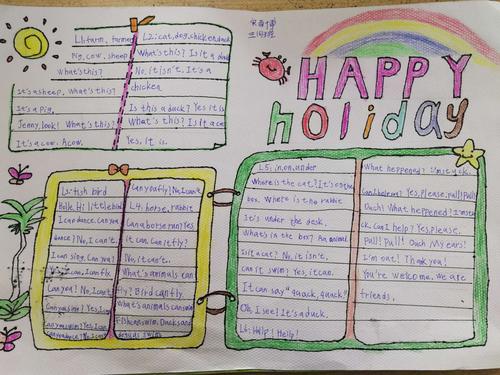 HAPPY
holiday
L1: farm, farmer
Pig, cow, sheep
What's this?
It's a sheep, What's this?
It's a Pig.
Jenny, look! What's this?
It's a cow. A cow.
L2: cat, dog, chicken, duck
What's this? Is it a duck
No, it isn't. It's a
chicken
Is this a duck? Yes it is
What's this? Is it a cat
Yes, it is.
L3: fish bird
Hello, Hi little bird
I can dance. Can you
dance? No, I can't.
I can sing. Can you
can, I can fly.
Can you? No, I can't
Can you swim? Yes, I can
Can you fly? No, I can't
L4. horse, rabbit
Can a horse run? Yes
it can. Can it fly?
No, it can't.
What's animals can
fly? Bird can fly.
What's animals can swim
Fish can swim. Ducks and
L5. in, on, under
Where is the cat? It's on the
box. Where is the rabbit
It's under the desk.
What's in the box? An animal
Is it a cat? No, it isn't.
Can it swim? Yes, it can.
It can say "quack, quack"
Oh, I see! It's a duck.
L6: Help! Help!
What heppened? I'm stuck.
Can I help you? Yes, Please. Pull! Pull!
Ouch! What happened? I'm stu
ck. Can I help? Yes, Please.
Pull! Pull! Ouch My ears!
I'm out! Thank you!
You're welcome. We are
friends.